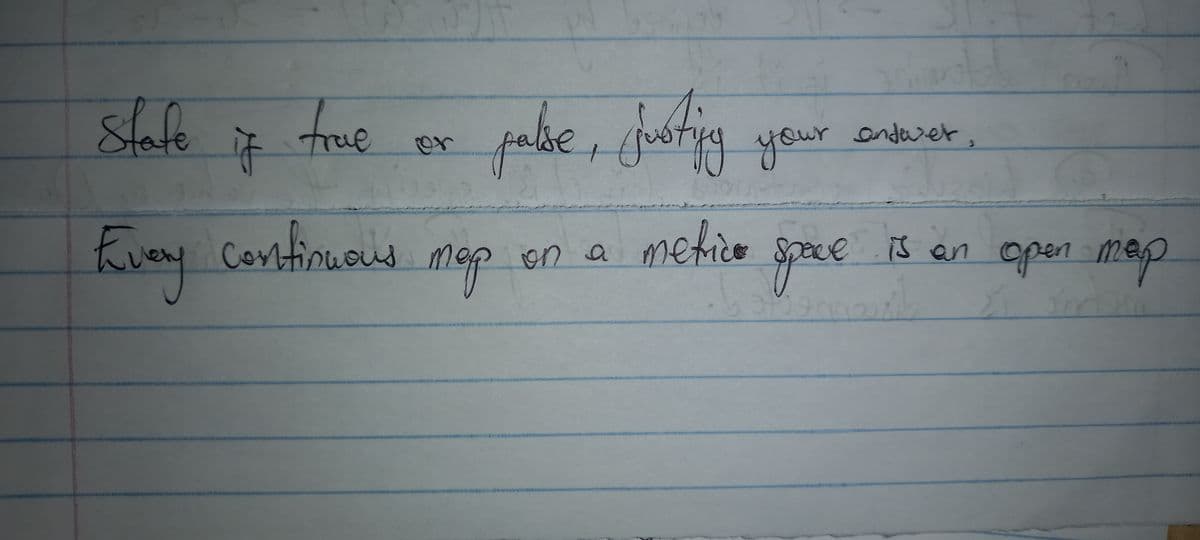 State if true or false, justify your answer,
Every continuous map on a metric space is an open map